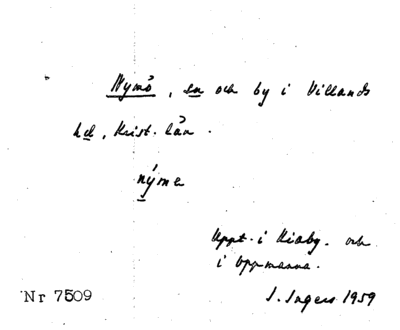 Nymö, sn och by i Villands
hd, Krist. län.
nýmə
Uppt. i Kiaby. och
i Oppmanna.
Nr 7509
I. Ingers 1959